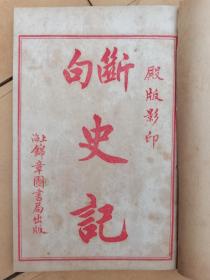 殿版影印
斷句
史記
上海錦章圖書局出版